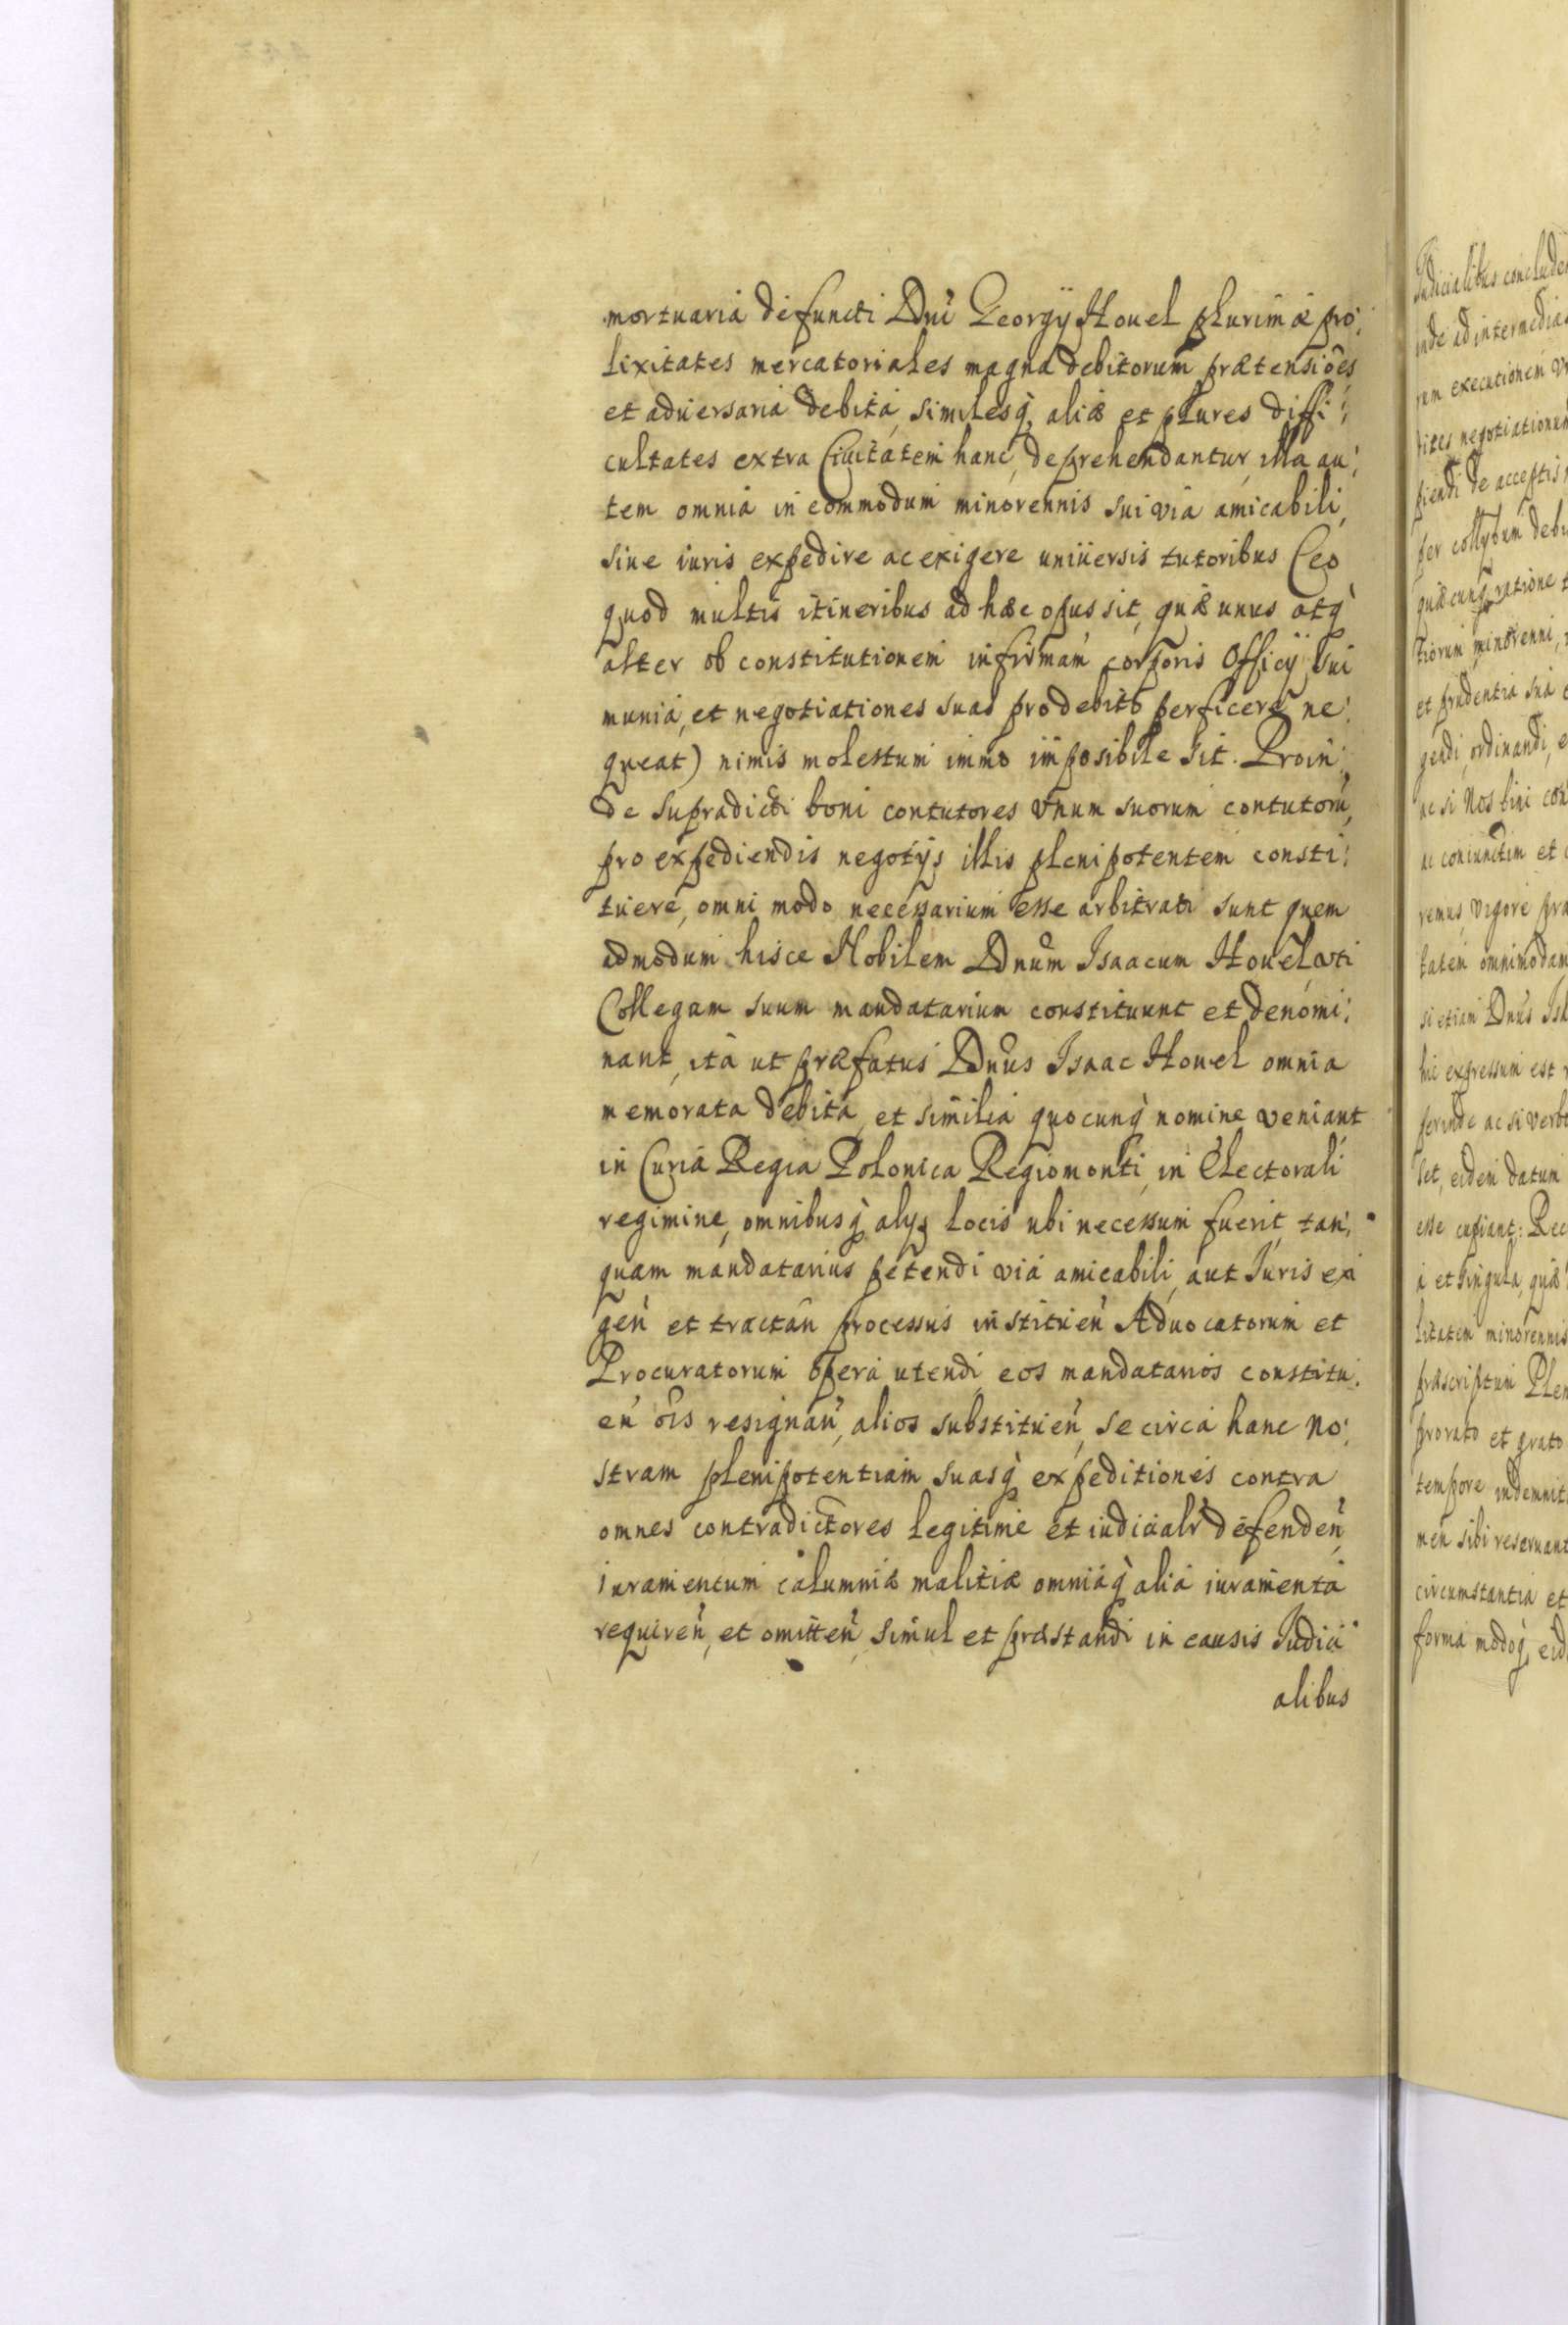 mortuaria defuncti Dni Georgÿ Houel plurimæ pro:
lixitates mercatoriales magna debitorum prætensiões
et aduersaria debita, similesq, aliæ et plures diffi:
cultates extra Ciuitatem hanc, deprehendantur, illa au:
tem omnia in commodum minorennis sui via amicabili,
siue iuris expedire ac exigere uniuersis tutoribus (eo
quod multis itineribus ad hæc opus sit, quæ unus atq
alter ob constitutionem infirmam corporis Officÿ sui
munia, et negotiationes suas pro debito perficere ne:
queat) nimis molestum immo imposibile sit. Proin:
de supradicti boni contutores vnum suorum contutorũ,
pro expediendis negotÿs illis plenipotentem consti:
tuere, omni modo necessarium esse arbitrati sunt quem
admodum hisce Nobilem Dnum Isaacum Houel uti
Collegam suum mandatarium constituunt et denomi:
nant, ita ut præfatus Dnus Isaac Houel omnia
memorata debita, et similia quocunq nomine veniant
in Curia Regia Polonica Regiomonti, in Electorali
regimine, omnibusq alÿs locis ubi necessum fuerit, tan:
quam mandatarius petendi via amicabili, aut Iuris exi
gen et tractan processus instituen Aduocatorum et
Procuratorum opera utendi, eos mandatarios constitu:
en ois resignan, alios substituen, se circa hanc no:
stram plenipotentiam suasq expeditiones contra
omnes contradictores legitime et iudicialr defenden,
iuramentum calumniæ malitiæ omniaq alia iuramenta
requiren, et omitten, simul et præstandi in causis Iudici
alibus
Iudicialibus conclude
inde ad intermedia
executionem
negotiationum
piendi de acceptis
per collybum
quæcunq ratione
minorenni,
et prudentia sua
gendi, ordinandi,
ac si Nos
ac coniunctim et
remus, vigore
omnimodam
si etiam Dnus
expressum est
perinde ac si
set, eidem datum
esse cupiant:
et singula, quæ
minorennis
præscriptum
pro rato et grato
tempore
sibi reseruant
circumstantia et
forma modoq,